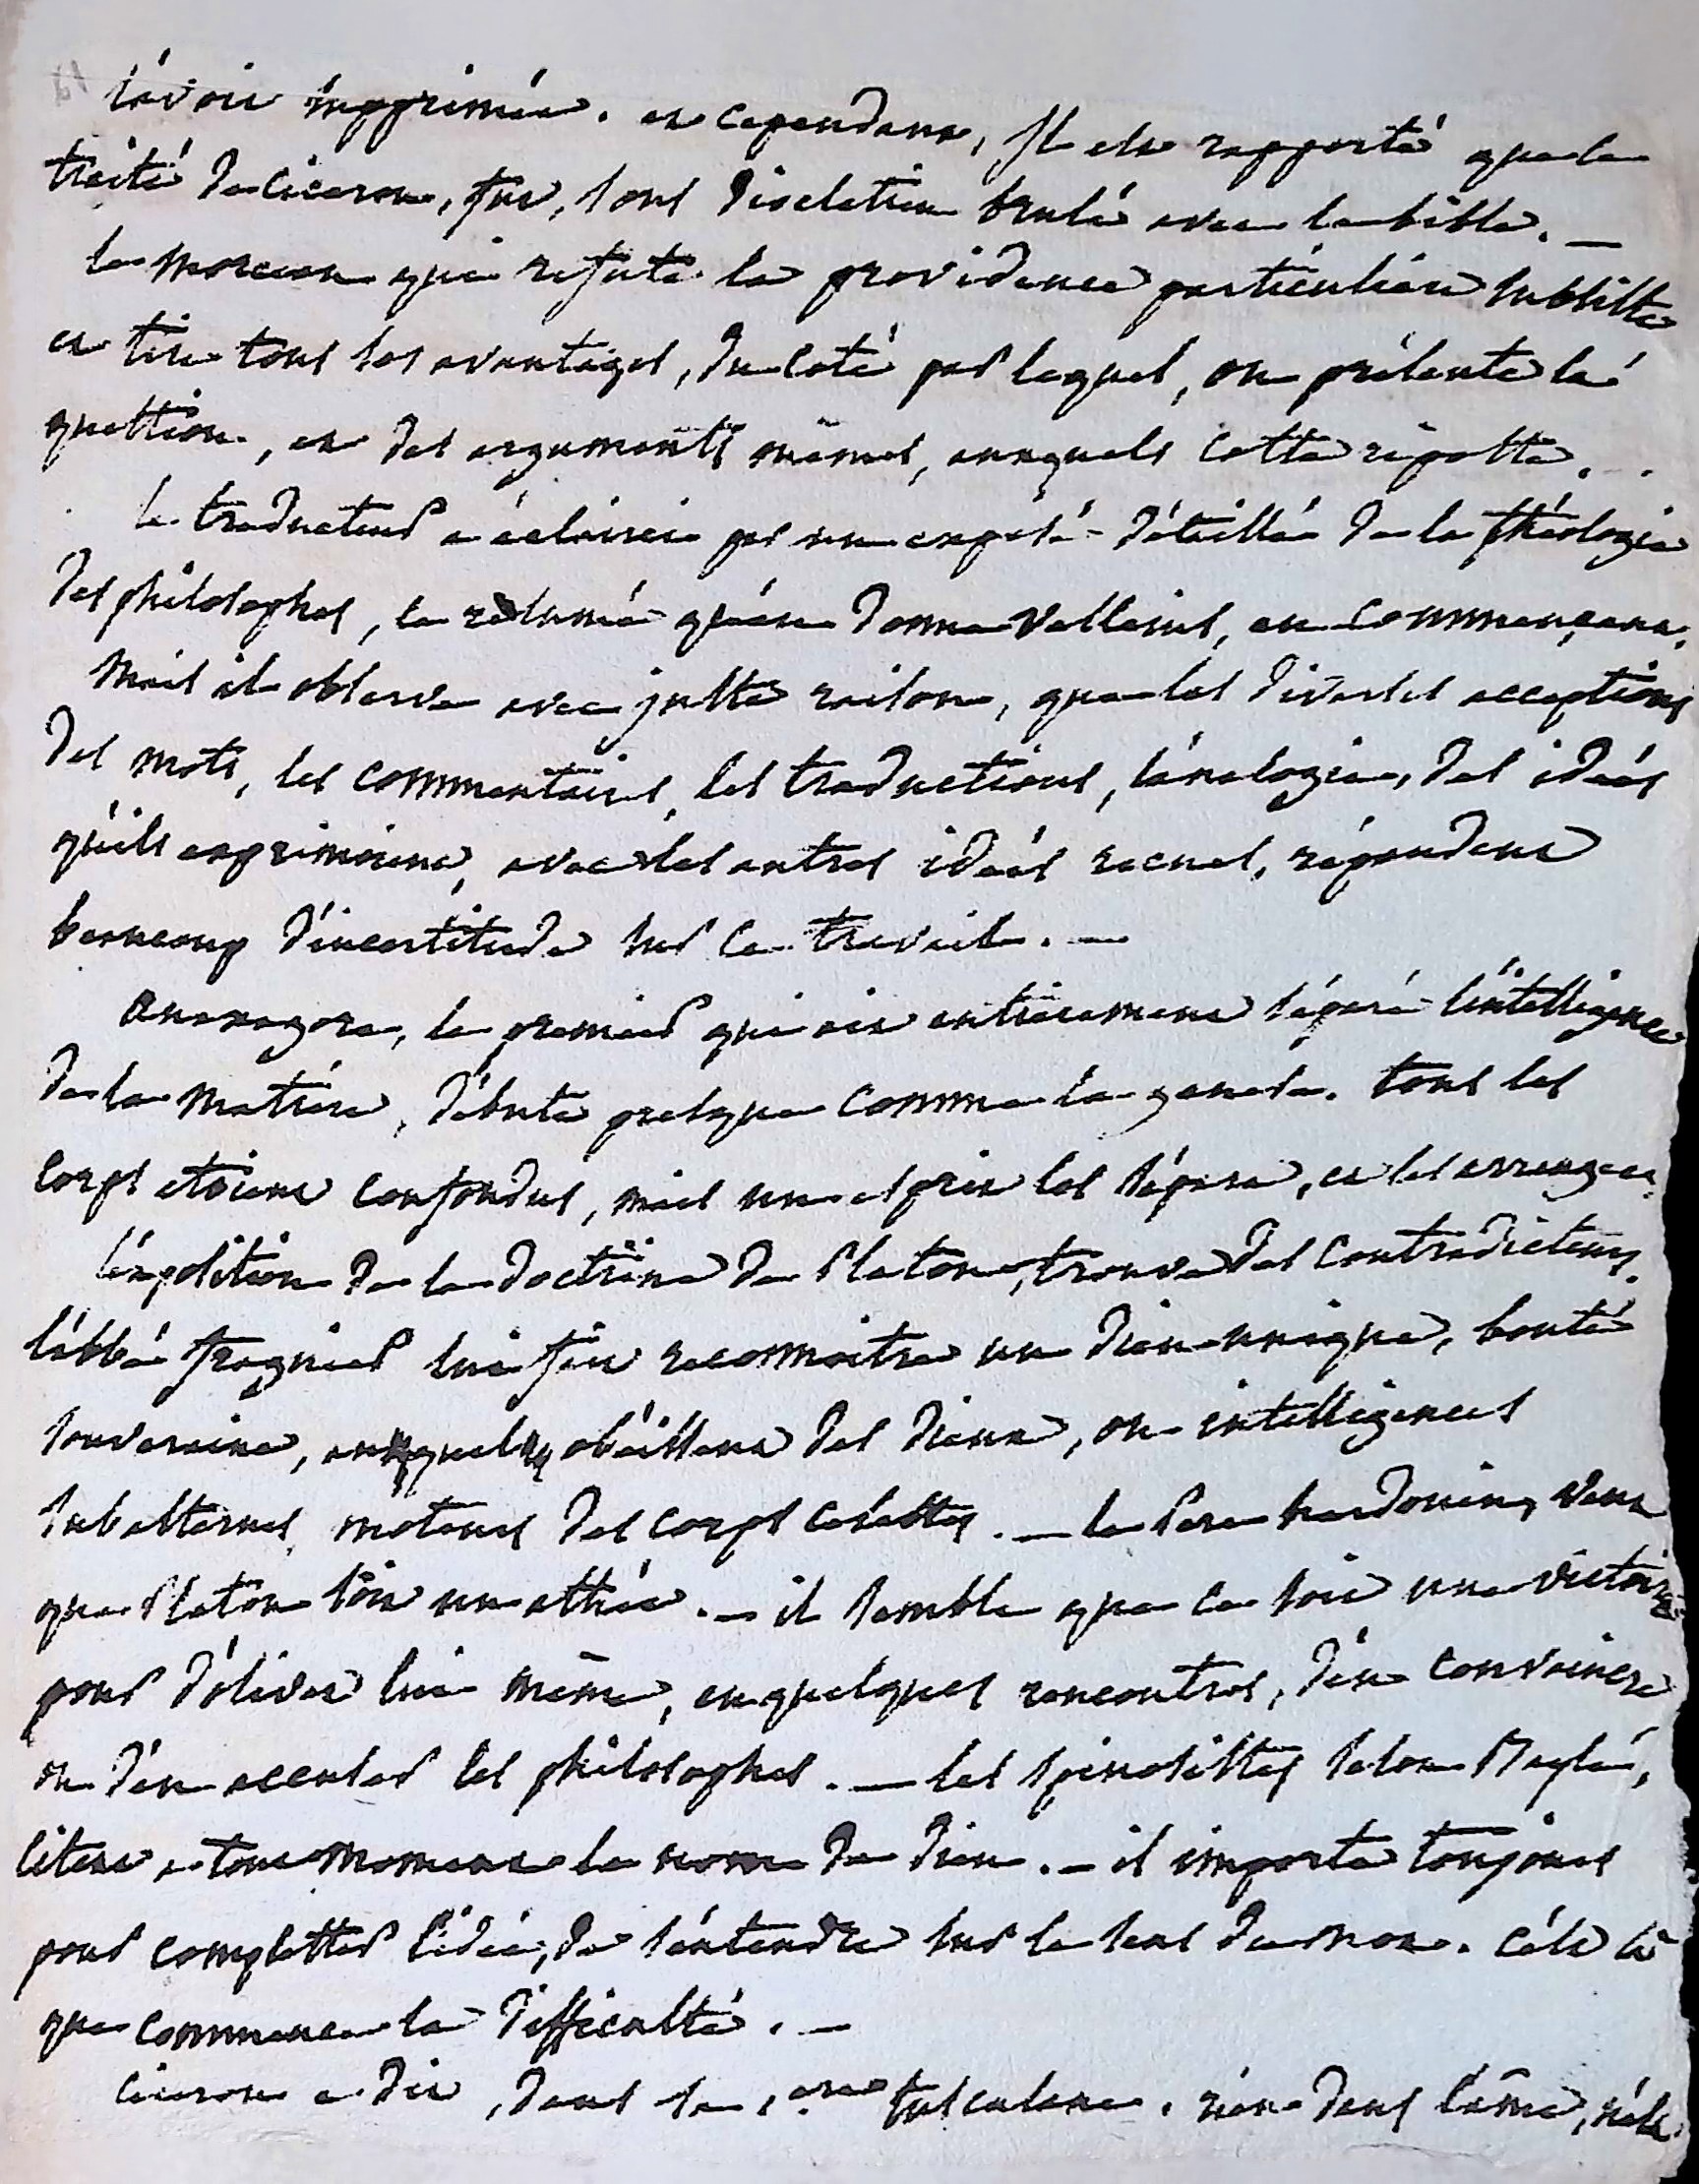 l'avoir supprimée. et cependant, Il est rapporté que le
traité de Ciceron, fut, sous Dioclétien brulé avec la bible. —
le morceau qui refute la providence particulière subsiste
et tire tous ses avantages, du coté par lequel, on présente la
question, et des arguments mêmes, auxquels Cotta riposte.
le traducteur a éclairci par un exposé détaillé de la théologie
des philosophes, le résumé qu'en donne Velleius, en commençant.
Mais il observe avec juste raison, que les diverses acceptions
des mots, les commentaires, les traductions, l'analogie, des idées
qu'ils exprimoient, avec les autres idées recues, répandent
beaucoup d'incertitude sur ce travail. —
anaxagore, le premier qui ait entièrement séparé l'intelligence
de la matière, débute presque comme la genese. tous les
corps etoient confondus, mais un esprit les sépara, et les arrangea.
l'expolition de la doctrine de Platon, trouve des contradicteurs.
l'abbé fraguier lui fait reconnoitre un dieu unique, bonté
souveraine, auquel obéissent des dieux, ou intelligences
subalternes, moteurs des corps celestes. — le Pere hardouin, veut
que Platon soit un athée. — il semble que ce soit une victoire
pour d'olivet lui même, en quelques rencontres, d'en convaincre
ou d'en accuser les philosophes. — les spinosistes selon Bayle,
citent a tout moment le nom de dieu. — il importe toujours
pour completter l'idée, de s'entendre sur le sens du mot. c'est là
que commence la difficulté. —
Ciceron a dit, dans sa 1.ere tusculane. rien dans l'âme, n'est